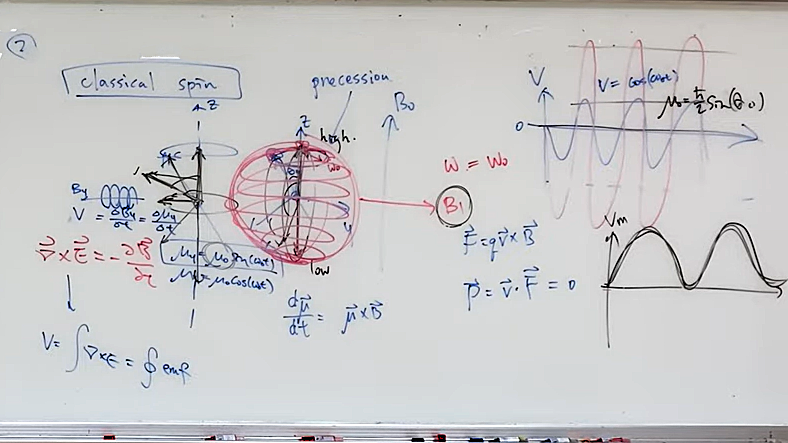 2
classical spin
precession
B₀
z
z
high.
ω₀
y
By
V = ∂By/∂t = ∂μy/∂t
∇⃗×E⃗ = -∂B⃗/∂t
μy = μ₀ sin(ω₀t)
= μ₀cos(ω₀t)
low
dμ⃗/dt = μ⃗×B⃗
V = ∫∇×E = ∮emf
ω = ω₀
B₁
F⃗=qv⃗×B⃗
P⃗ = v⃗·F⃗ = 0
V
V = cos(ω₀t)
μ₀=ħ/2 sin(θ.0)
0
Vm